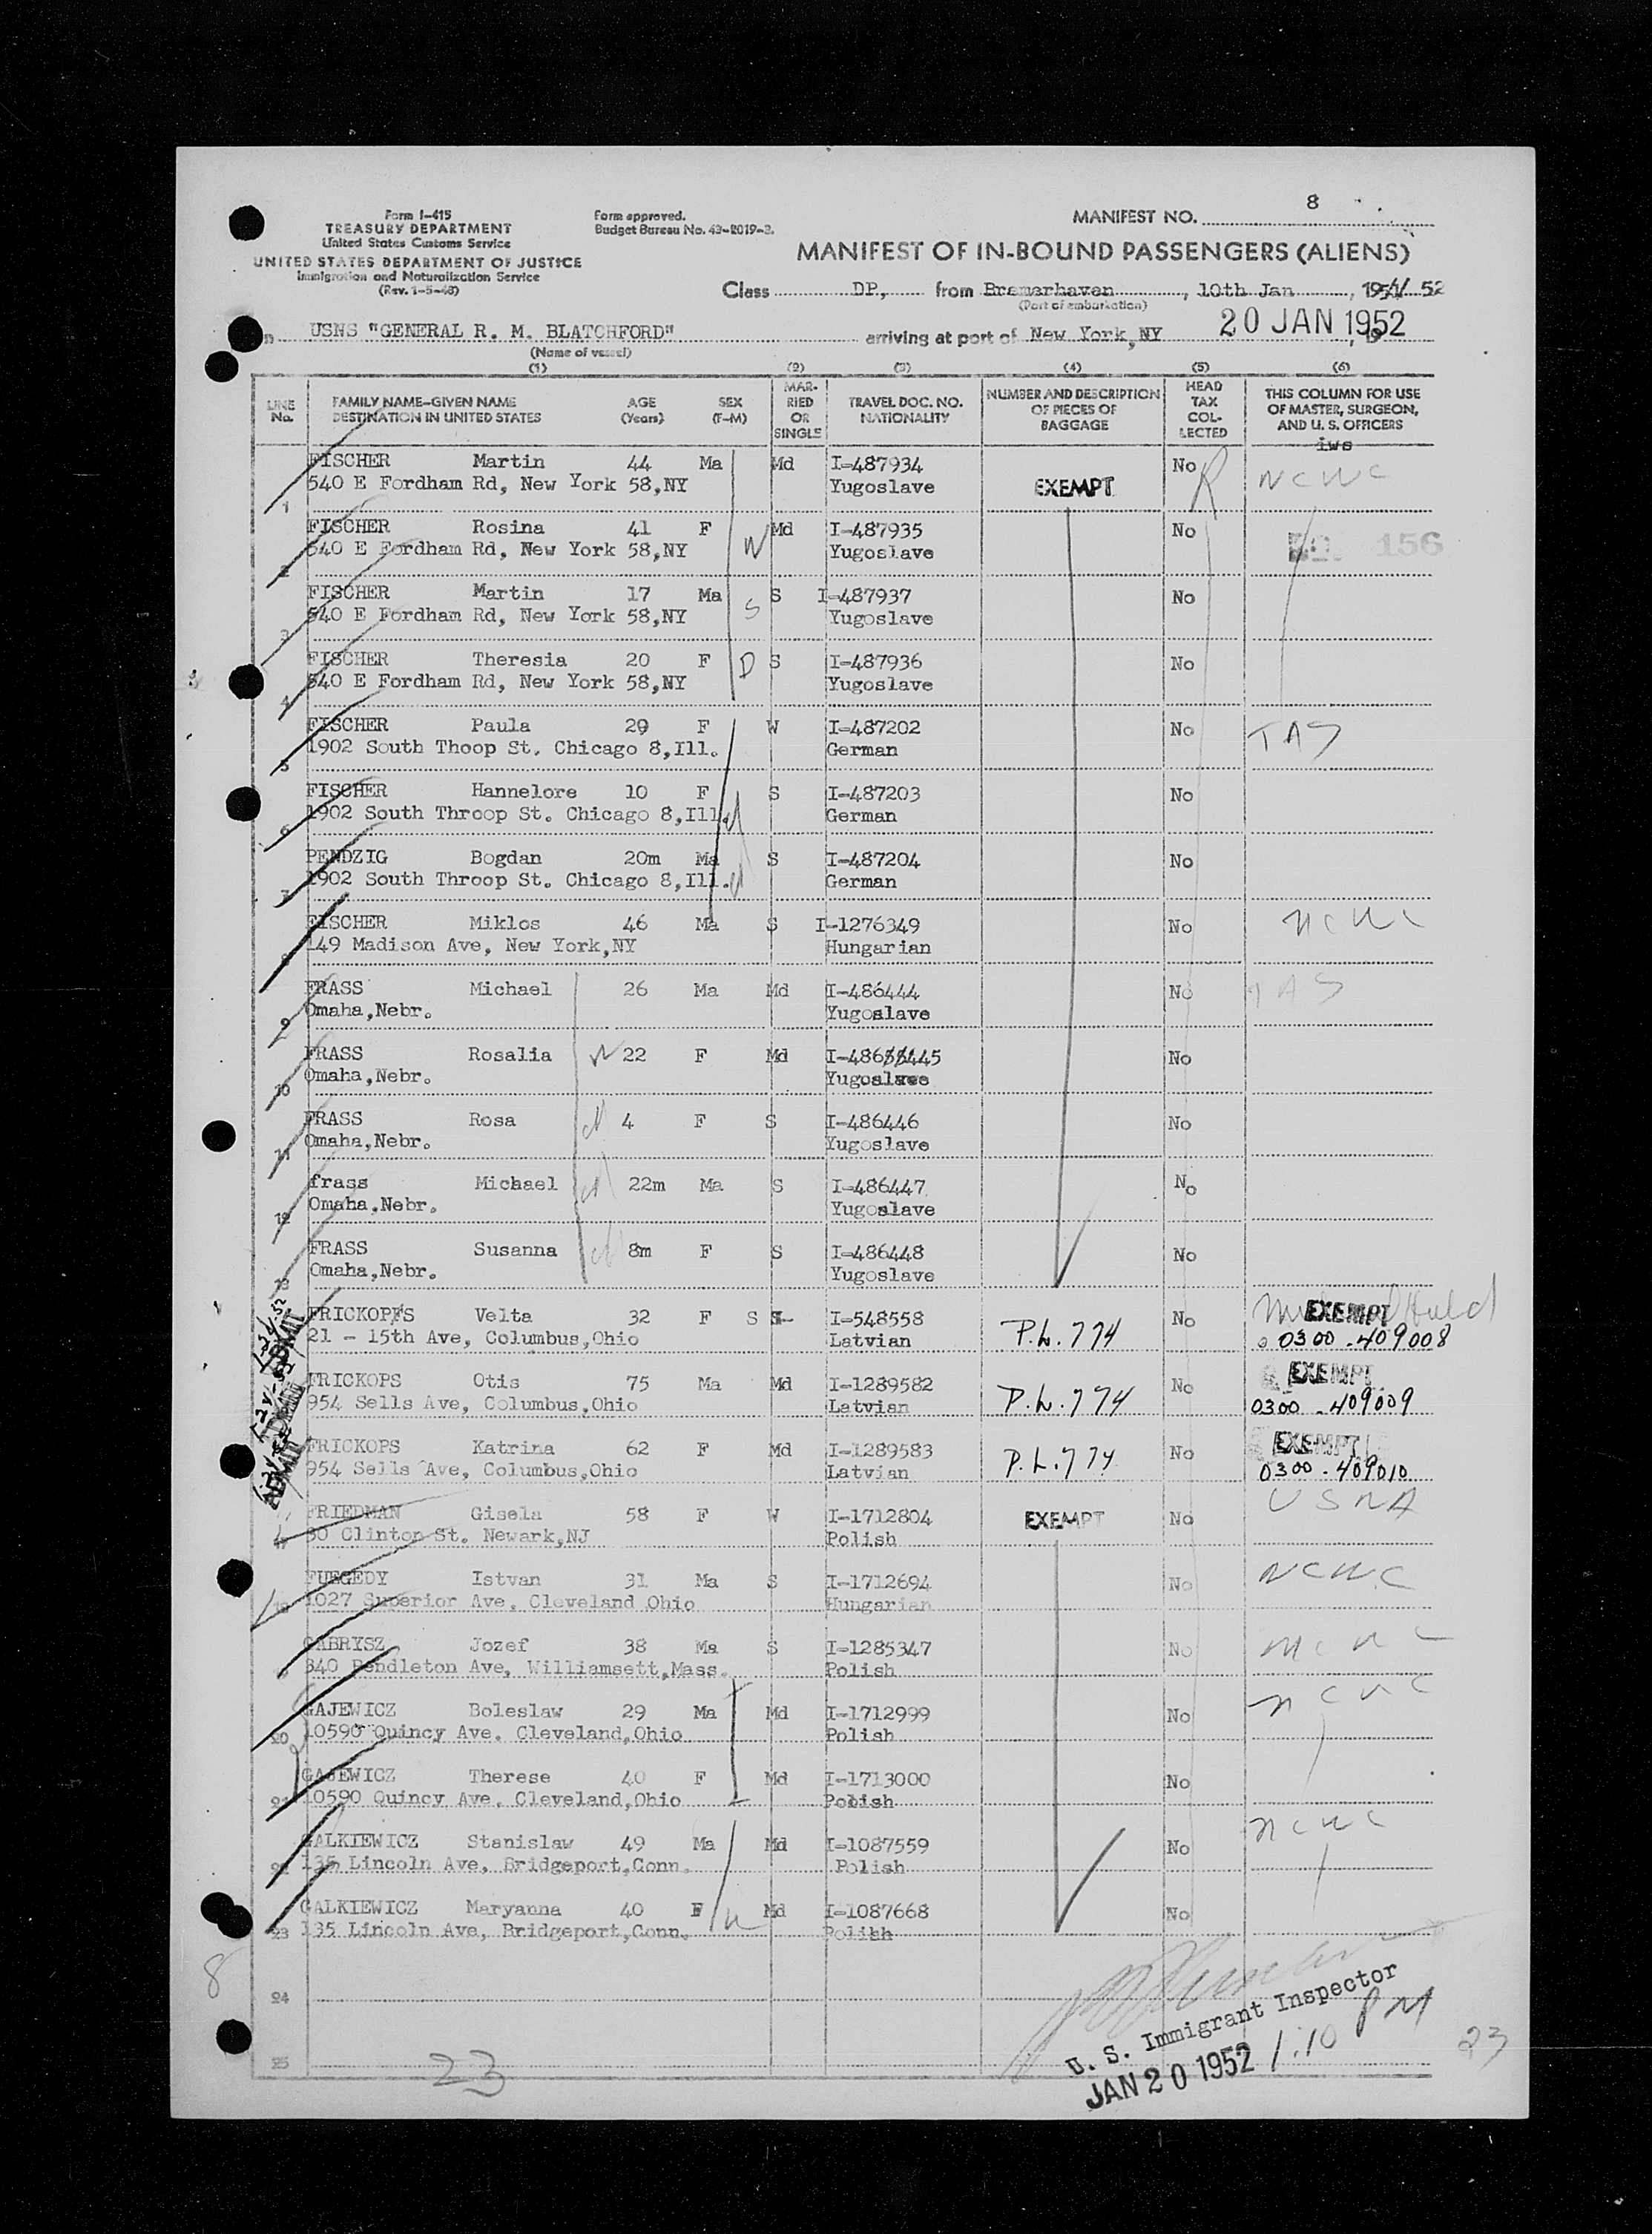 Form I-415
TREASURY DEPARTMENT
United States Customs Service
UNITED STATES DEPARTMENT OF JUSTICE
Immigration and Naturalization Service
(Rev. 1-5-48)
Form approved.
Budget Bureau No. 43-R019-2.
MANIFEST NO. 8
MANIFEST OF IN-BOUND PASSENGERS (ALIENS)
Class DP, from Bremerhaven, 10th Jan, 1951 52
(Port of embarkation)
on USNS "GENERAL R. M. BLATCHFORD" arriving at port of New York, NY 20 JAN 1952, 19
(Name of vessel)
(1) (2) (3) (4) (5) (6)
LINE No. FAMILY NAME-GIVEN NAME DESTINATION IN UNITED STATES AGE (Years) SEX (F-M) MARRIED OR SINGLE TRAVEL DOC. NO. NATIONALITY NUMBER AND DESCRIPTION OF PIECES OF BAGGAGE HEAD TAX COLLECTED THIS COLUMN FOR USE OF MASTER, SURGEON, AND U. S. OFFICERS
iws
FISCHER Martin 44 Ma Md I-487934 No NCWC
1 540 E Fordham Rd, New York 58,NY Yugoslave EXEMPT
FISCHER Rosina 41 F W Md I-487935 No
2 540 E Fordham Rd, New York 58,NY Yugoslave 156
FISCHER Martin 17 Ma S S I-487937 No
3 540 E Fordham Rd, New York 58,NY Yugoslave
FISCHER Theresia 20 F D S I-487936 No
4 540 E Fordham Rd, New York 58,NY Yugoslave
FISCHER Paula 29 F W I-487202 No TAS
5 1902 South Thoop St. Chicago 8,Ill. German
FISCHER Hannelore 10 F S I-487203 No
6 1902 South Throop St. Chicago 8,Ill. d German
PENDZIG Bogdan 20m Ma S I-487204 No
7 1902 South Throop St. Chicago 8,Ill. d German
FISCHER Miklos 46 Ma S I-1276349 No NCWC
8 149 Madison Ave, New York,NY Hungarian
FRASS Michael 26 Ma Md I-486444 No TAS
9 Omaha,Nebr. Yugoslave
FRASS Rosalia W 22 F Md I-486445 No
10 Omaha,Nebr. Yugoslave
FRASS Rosa d 4 F S I-486446 No
11 Omaha,Nebr. Yugoslave
frass Michael d 22m Ma S I-486447 No
12 Omaha.Nebr. Yugoslave
FRASS Susanna d 8m F S I-486448 No
13 Omaha,Nebr. Yugoslave
ADMIT FRICKOPFS Velta 32 F S I-548558 P.L.774 No EXEMPT
21 - 15th Ave, Columbus,Ohio Latvian 0300-409008
ADMIT FRICKOPS Otis 75 Ma Md I-1289582 P.L.774 No EXEMPT
954 Sells Ave, Columbus,Ohio Latvian 0300-409009
ADMIT FRICKOPS Katrina 62 F Md I-1289583 P.L.774 No EXEMPT
954 Sells Ave, Columbus,Ohio Latvian 0300-409010
FRIEDMAN Gisela 58 F W I-1712804 EXEMPT No USNA
17 30 Clinton St. Newark,NJ Polish
FUEGEDY Istvan 31 Ma S I-1712694 No NCWC
18 1027 Superior Ave. Cleveland Ohio Hungarian
GABRYSZ Jozef 38 Ma S I-1285347 No NCWC
340 Pendleton Ave, Williamsett,Mass. Polish
GAJEWICZ Boleslaw 29 Ma Md I-1712999 No NCWC
20 10590 Quincy Ave. Cleveland,Ohio Polish
GAJEWICZ Therese 40 F Md I-1713000 No
21 10590 Quincy Ave. Cleveland,Ohio Polish
GALKIEWICZ Stanislaw 49 Ma Md I-1087559 No NCWC
22 135 Lincoln Ave, Bridgeport,Conn. Polish
GALKIEWICZ Maryanna 40 F W Md I-1087668 No
23 135 Lincoln Ave, Bridgeport,Conn. Polish
8
24
U. S. Immigrant Inspector
JAN 20 1952 1:10 PM
25
23
23